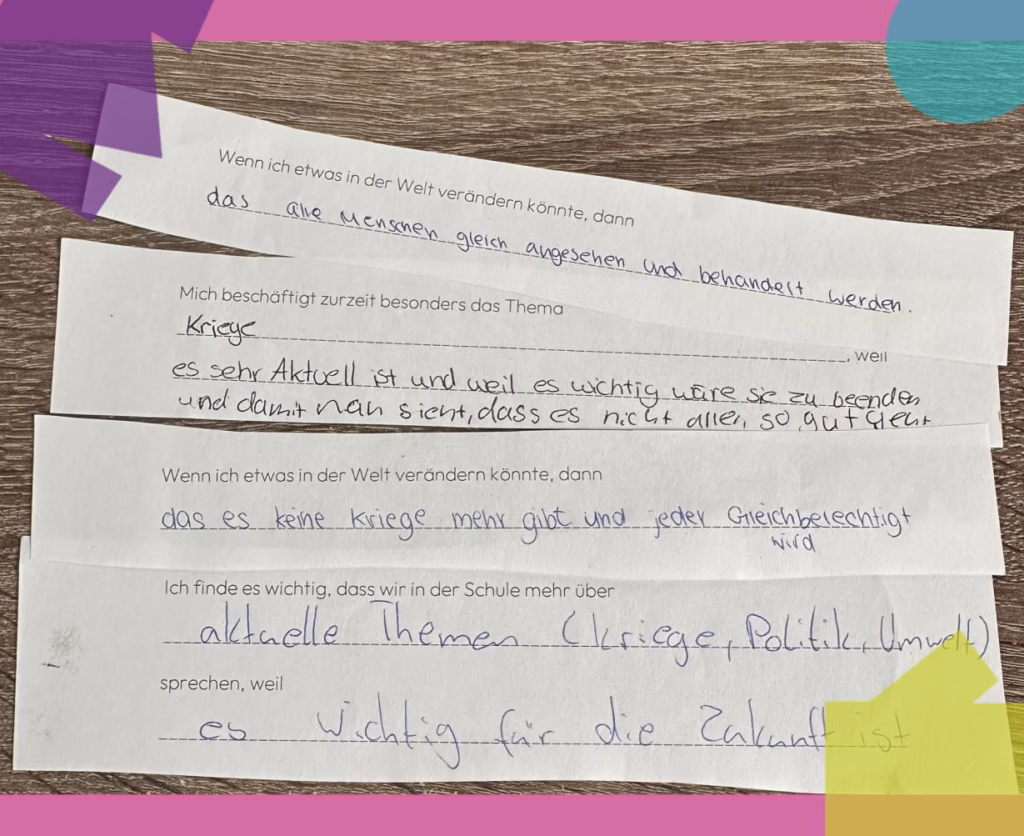 Wenn ich etwas in der Welt verändern könnte, dann
das alle Menschen gleich angesehen und behandelt werden.
Mich beschäftigt zurzeit besonders das Thema
Kriege, weil
es sehr Aktuell ist und weil es wichtig wäre sie zu beenden
und damit man sieht, dass es nicht allen so gut geht
Wenn ich etwas in der Welt verändern könnte, dann
das es keine Kriege mehr gibt und jeder Gleichberechtigt
wird
Ich finde es wichtig, dass wir in der Schule mehr über
aktuelle Themen (kriege, Politik, Umwelt)
sprechen, weil
es wichtig für die Zukunft ist